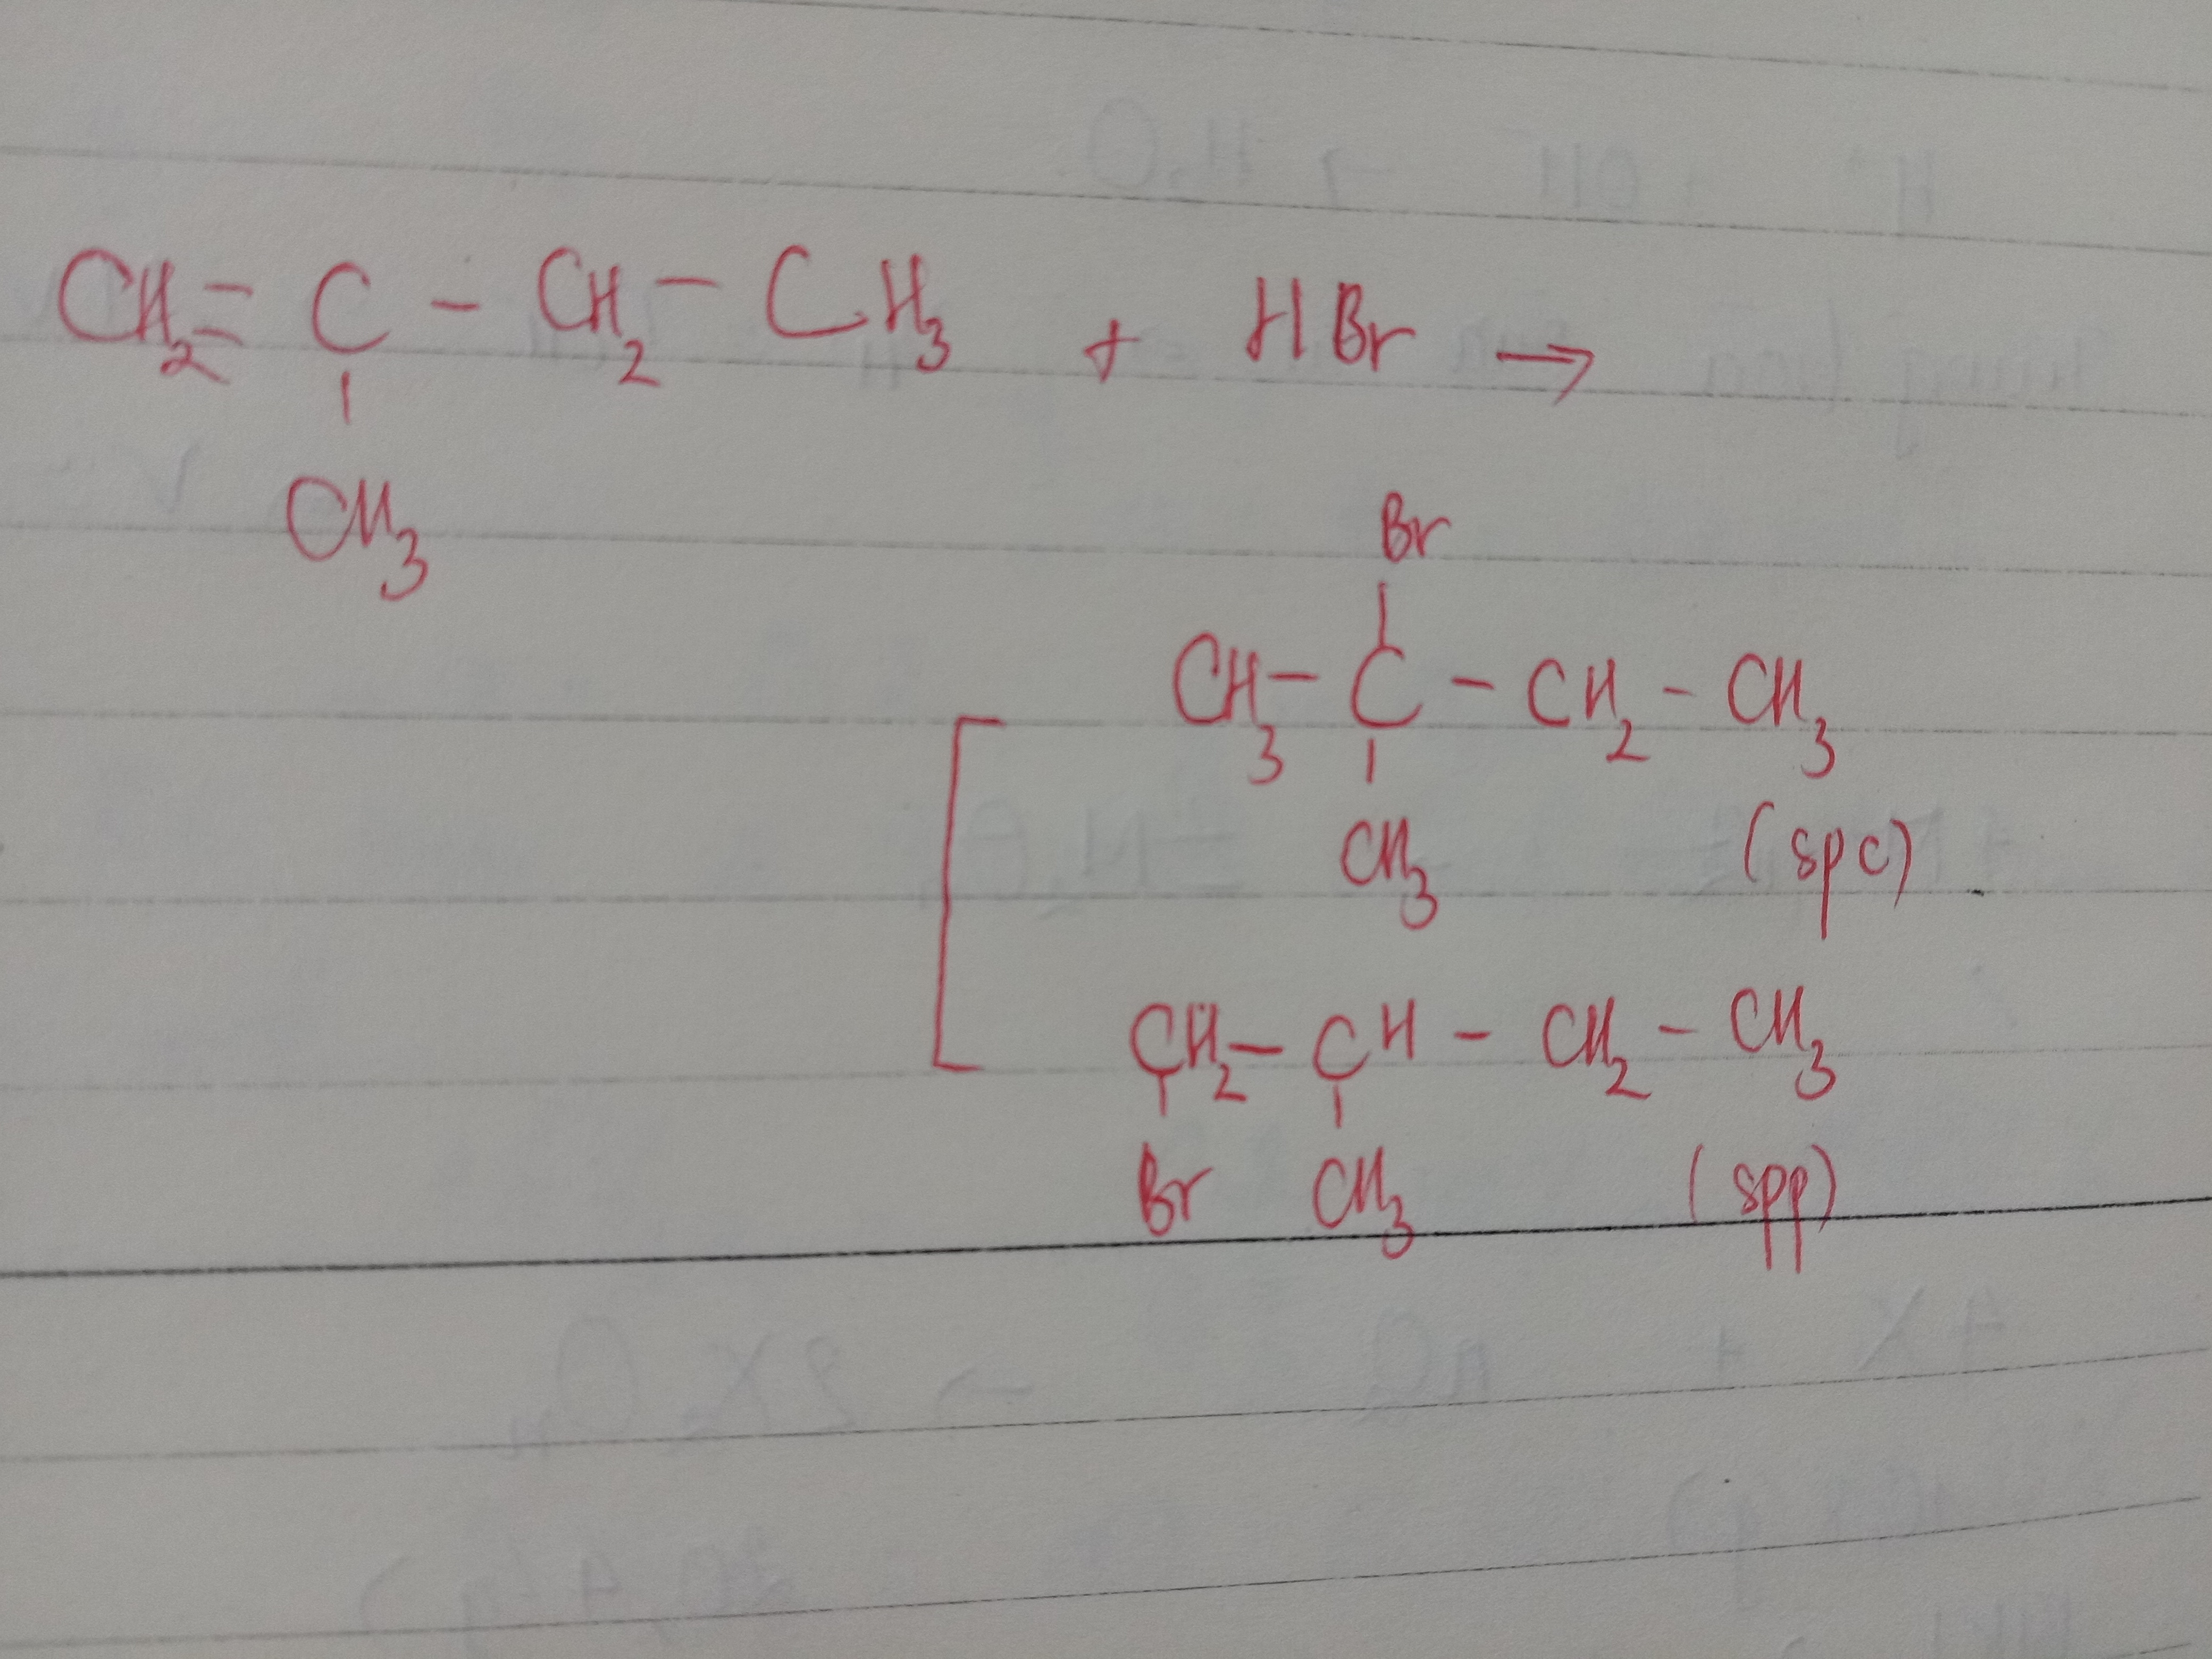 CH₂ = C - CH₂ - CH₃ + HBr →
CH₃
Br
CH₃ - C - CH₂ - CH₃
CH₃ (spc)
CH₂ - CH - CH₂ - CH₃
Br CH₃ (spp)